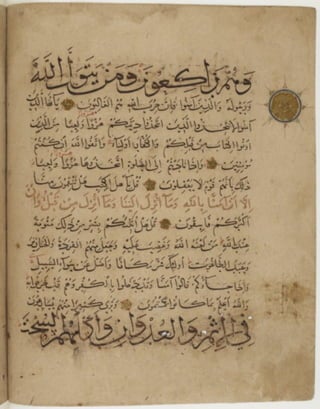 وَهُمْ رَاكِعُونَ وَمَنْ يَتَوَلَّ اللَّهَ
وَرَسُولَهُ وَالَّذِينَ آمَنُوا فَإِنَّ حِزْبَ اللَّهِ هُمُ الْغَالِبُونَ يَا أَيُّهَا الَّذِينَ
آمَنُوا لَا تَتَّخِذُوا الَّذِينَ اتَّخَذُوا دِينَكُمْ هُزُوًا وَلَعِبًا مِنَ الَّذِينَ
أُوتُوا الْكِتَابَ مِنْ قَبْلِكُمْ وَالْكُفَّارَ أَوْلِيَاءَ وَاتَّقُوا اللَّهَ إِنْ كُنْتُمْ
مُؤْمِنِينَ وَإِذَا نَادَيْتُمْ إِلَى الصَّلَوةِ اتَّخَذُوهَا هُزُوًا وَلَعِبًا
ذَلِكَ بِأَنَّهُمْ قَوْمٌ لَا يَعْقِلُونَ قُلْ يَا أَهْلَ الْكِتَابِ هَلْ تَنْقِمُونَ مِنَّا
إِلَّا أَنْ آمَنَّا بِاللَّهِ وَمَا أُنْزِلَ إِلَيْنَا وَمَا أُنْزِلَ مِنْ قَبْلُ وَأَنَّ
أَكْثَرَكُمْ فَاسِقُونَ قُلْ هَلْ أُنَبِّئُكُمْ بِشَرٍّ مِنْ ذَلِكَ مَثُوبَةً
عِنْدَ اللَّهِ مَنْ لَعَنَهُ اللَّهُ وَغَضِبَ عَلَيْهِ وَجَعَلَ مِنْهُمُ الْقِرَدَةَ وَالْخَنَازِيرَ
وَعَبَدَ الطَّاغُوتَ أُولَئِكَ شَرٌّ مَكَانًا وَأَضَلُّ عَنْ سَوَاءِ السَّبِيلِ
وَإِذَا جَاءُوكُمْ قَالُوا آمَنَّا وَقَدْ دَخَلُوا بِالْكُفْرِ وَهُمْ قَدْ خَرَجُوا بِهِ
وَاللَّهُ أَعْلَمُ بِمَا كَانُوا يَكْتُمُونَ وَتَرَى كَثِيرًا مِنْهُمْ يُسَارِعُونَ
فِي الْإِثْمِ وَالْعُدْوَانِ وَأَكْلِهِمُ السُّحْتَ